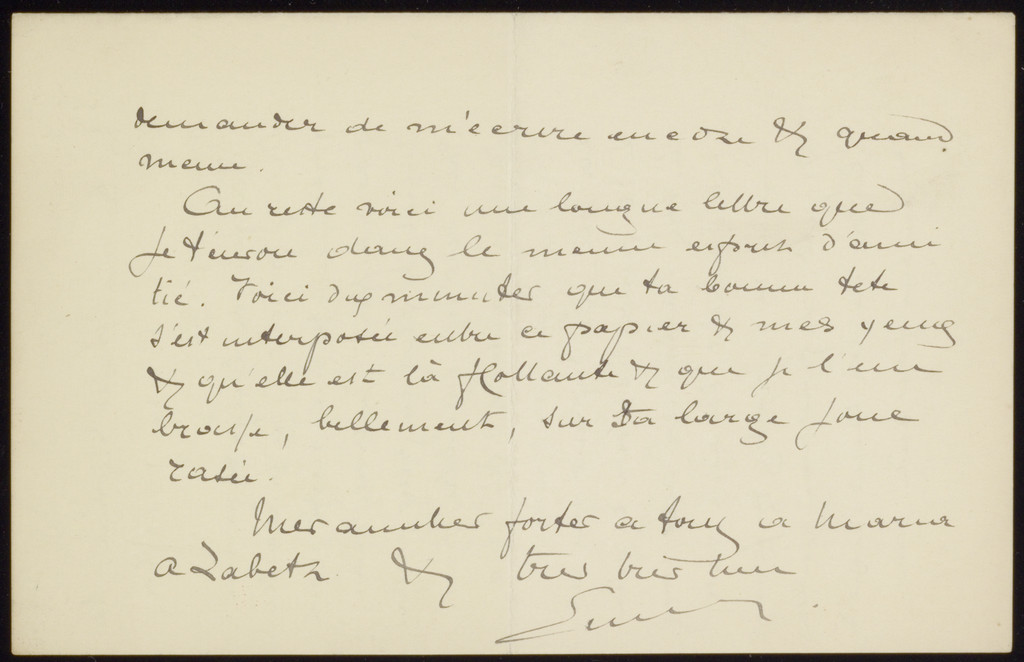 demander de m'écrire encore & quand
meme.
Au reste voici une longue lettre que
je t'envoie dans le meme esprit d'ami
tié. Voici dix minutes que ta bonne tete
s'est interposée entre ce papier & mes yeux
& qu'elle est là flottante & que je l'em
brasse, bellement, sur ta large joue
rasée.
Mes amitiés fortes a tous a Maria
a Zabeth & très très